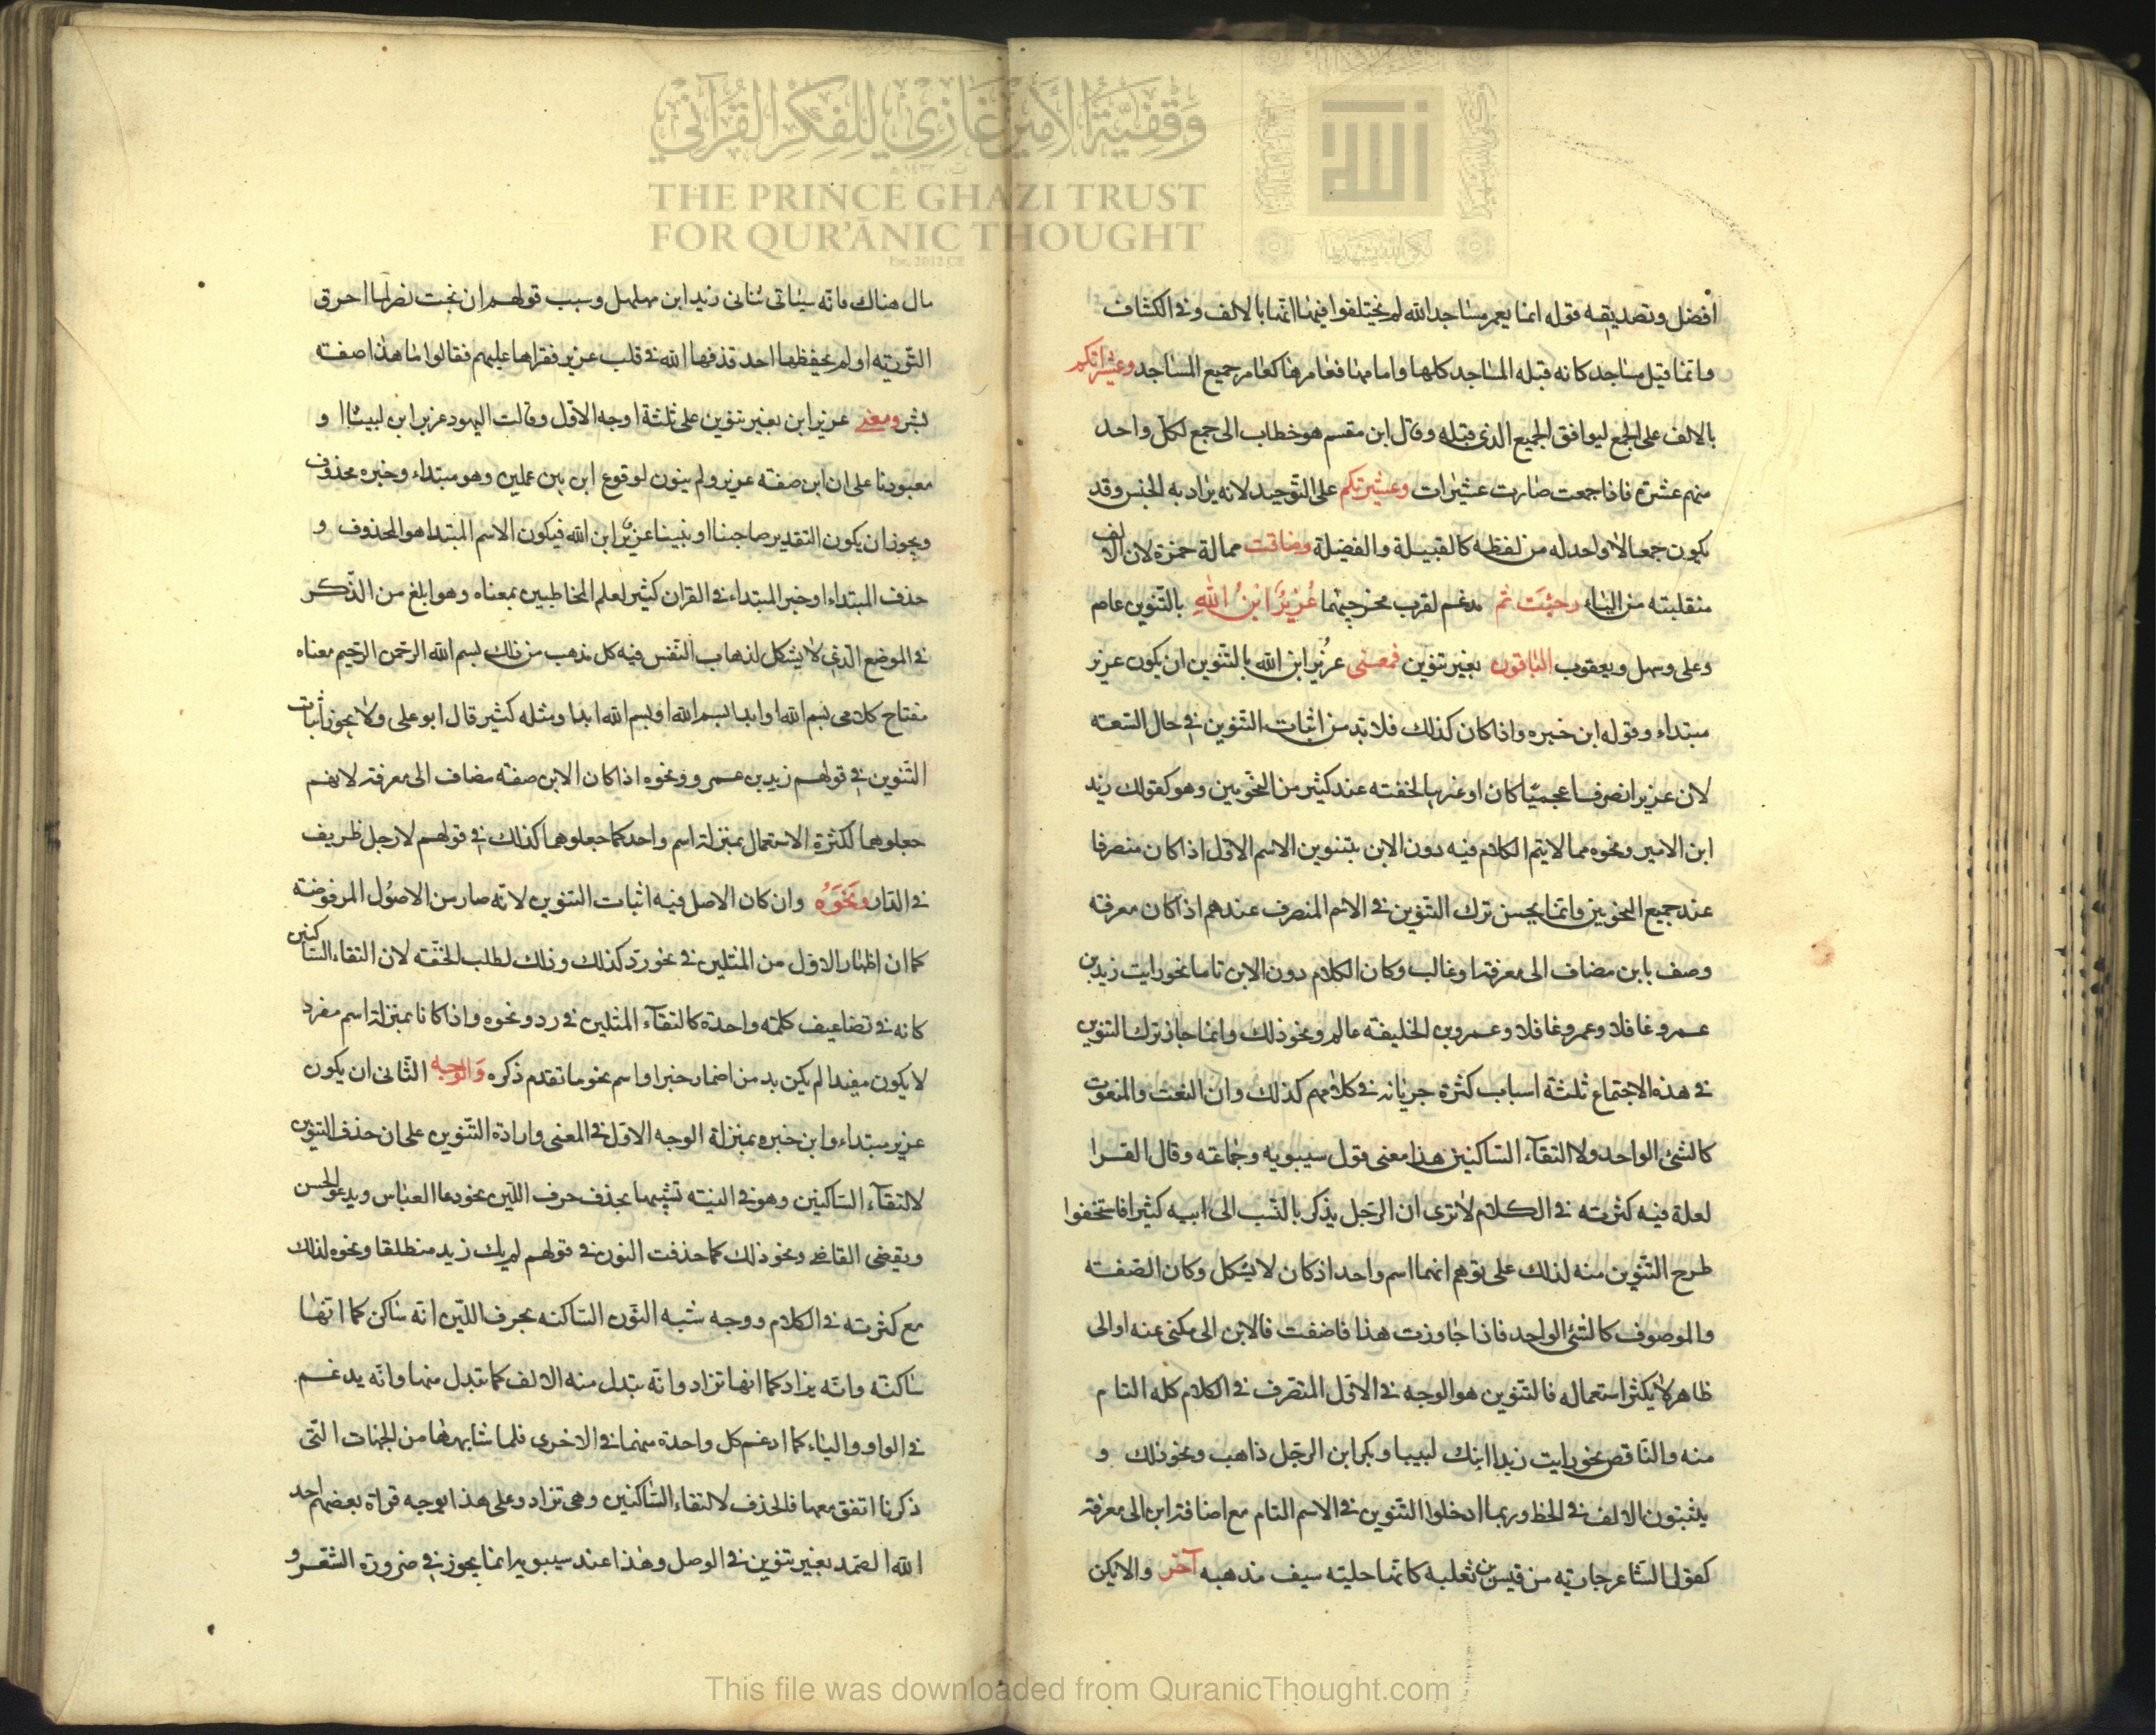 وقفية الأمير غازي للفكر القرآني
THE PRINCE GHAZI TRUST
FOR QUR'ĀNIC THOUGHT
Est. 2012 CE
الله
افضل وتصديقه قوله انما يعمر مساجد الله لم يختلفوا فيها انها بالالف وفى الكشاف
وانما قيل مساجد كانه قبله المساجد كلها واما مها فعامرها كعامر جميع المساجد وعشيراتكم
بالالف على الجمع ليوافق الجميع الذى قبله وقال ابن مقسم هو خطاب الى جمع لكل واحد
منهم عشرة فاذا جمعت صارت عشيرات وعشيرتكم على التوحيد لانه يراد به الجنس وقد
يكون جمعا لا واحد له من لفظه كالقبيلة والفضيلة وضاقت ممالة حمزة لان الالف
منقلبته من الياء رحبت ثم مدغم لقرب مخرجيهما عزيرٌ ابنُ الله بالتنوين عاصم
وعلى وسهل ويعقوب الباقون بغير تنوين فمعنى عزير ابن الله بالتنوين ان يكون عزير
مبتداء وقوله ابن خبره واذا كان كذلك فلا بد من اثبات التنوين فى حال السعة
لان عزيرا نصرف اعجميا كان او عربيا لخفته عند كثير من النحويين وهو كقولك زيد
ابن الامير ونحوه مما لا يتم الكلام فيه دون الابن بتنوين الاسم الاول اذا كان منصرفا
عند جميع النحويين وانما يحسن ترك التنوين فى الاسم المنصرف عندهم اذا كان معرفة
وصف بابن مضاف الى معرفة او غالب وكان الكلام دون الابن تاما نحو رايت زيد بن
عمرو غافلا وعمرو غافلا وعمرو بن الخليفة عالم ونحو ذلك وانما جاز ترك التنوين
فى هذه الاجتماع ثلثة اسباب كثرة جريانه فى كلامهم كذلك وان النعت والمنعوت
كالشئ الواحد ولا التقآء الساكنين هذا معنى قول سيبويه وجماعته وقال الفرا
لعلة فيه كثرته فى الكلام لا ترى ان الرجل يذكر بالنسب الى ابيه كثيرا فاستخفوا
طرح التنوين منه لذلك على توهم انهما اسم واحد اذ كان لا يشكل وكان الصفة
والموصوف كالشئ الواحد فاذا جاوزت هذا فاضفت فالابن الى مكنى عنه او الى
ظاهر لا يكثر استعماله فالتنوين هو الوجه فى الاول المتصرف فى الكلام كله التام
منه والناقص نحو رايت زيدا ابنك لبيبا وبكر ابن الرجل ذاهب ونحو ذلك و
يثبتون الالف فى الخط وربما ادخلوا التنوين فى الاسم التام مع اضافة ابن الى معرفة
كقول الشاعر جارية من قيس بن ثعلبه كانها حلية سيف مذهبه آخر والا يكن
مال هناك فانه سياتى ثنائى زيد ابن مهلهل وسبب قولهم ان بخت نصر لما احرق
التورية او لم يحفظها احد قذفها الله فى قلب عزير فقراها عليهم فقالوا ما هذا صفة
بشر ومعنى عزير ابن بغير تنوين على ثلثة اوجه الاول وقالت اليهود عزير ابن لبيناا و
معبودنا على ان ابن صفة عزير ولم ينون لوقوع ابن بين علمين وهو مبتداء وخبره محذوف
ويجوز ان يكون التقدير صاحبنا او نبينا عزير ابن الله فيكون الاسم المبتدا هو المحذوف و
حذف المبتداء او خبر المبتداء فى القران كثير لعلم المخاطبين بمعناه وهو ابلغ من الذكر
فى الموضع الذى لا يشكل لذهاب النفس فيه كل مذهب من ذلك بسم الله الرحمن الرحيم معناه
مفتاح كلامى بسم الله او ابدا بسم الله او بسم الله ابدا ومثله كثير قال ابو على ولا يجوز اثبات
التنوين فى قولهم زيد بن عمرو ونحوه اذا كان الابن صفة مضاف الى معرفة لانهم
جعلوهما لكثرة الاستعمال بمنزلة اسم واحد كما جعلوهما كذلك فى قولهم لا رجل ظريف
فى الدار ونحوه وان كان الاصل فيه اثبات التنوين لانه صار من الاصول المرفوضة
كما ان اظهار الاول من المثلين فى نحو رد كذلك وذلك لطلب الخفة لان التقاء الساكنين
كانه فى تضاعيف كلمة واحدة كالتقآء المثلين فى رد ونحوه واذا كانا بمنزلة اسم مفرد
لا يكون مفيدا لم يكن بد من اضمار خبر او اسم نحو ما تقدم ذكره والوجه الثانى ان يكون
عزير مبتداء وابن خبره بمنزلة الوجه الاول فى المعنى وارادة التنوين على ان حذف التنوين
لالتقآء الساكنين وهو فى النية تشبيها بحذف حرف اللين نحو دعا العباس ويدعو الحسن
ويقضى القاضى ونحو ذلك كما حذفت النون فى قولهم لم يك زيد منطلقا ونحوه لذلك
مع كثرته فى الكلام ووجه شبه النون الساكنة بحرف اللين انه ساكن كما انها
ساكنة وانه يزاد كما انها تزاد وانه تبدل منه الالف كما تبدل منها وانه يدغم
فى الواو والياء كما ادغم كل واحدة منهما فى الاخرى فلما شابهها من الجهات التى
ذكرنا اتفق معها فالحذف لالتقاء الساكنين وهى تزاد وعلى هذا يوجه قراة بعضهم احد
الله الصمد بغير تنوين فى الوصل وهذا عند سيبويه انما يجوز فى ضرورة الشعر و
This file was downloaded from QuranicThought.com